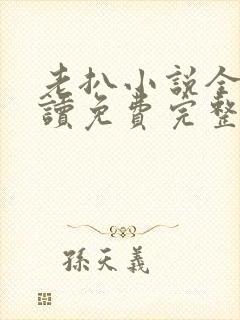 老扒小説全
讀免費完整
孫天義